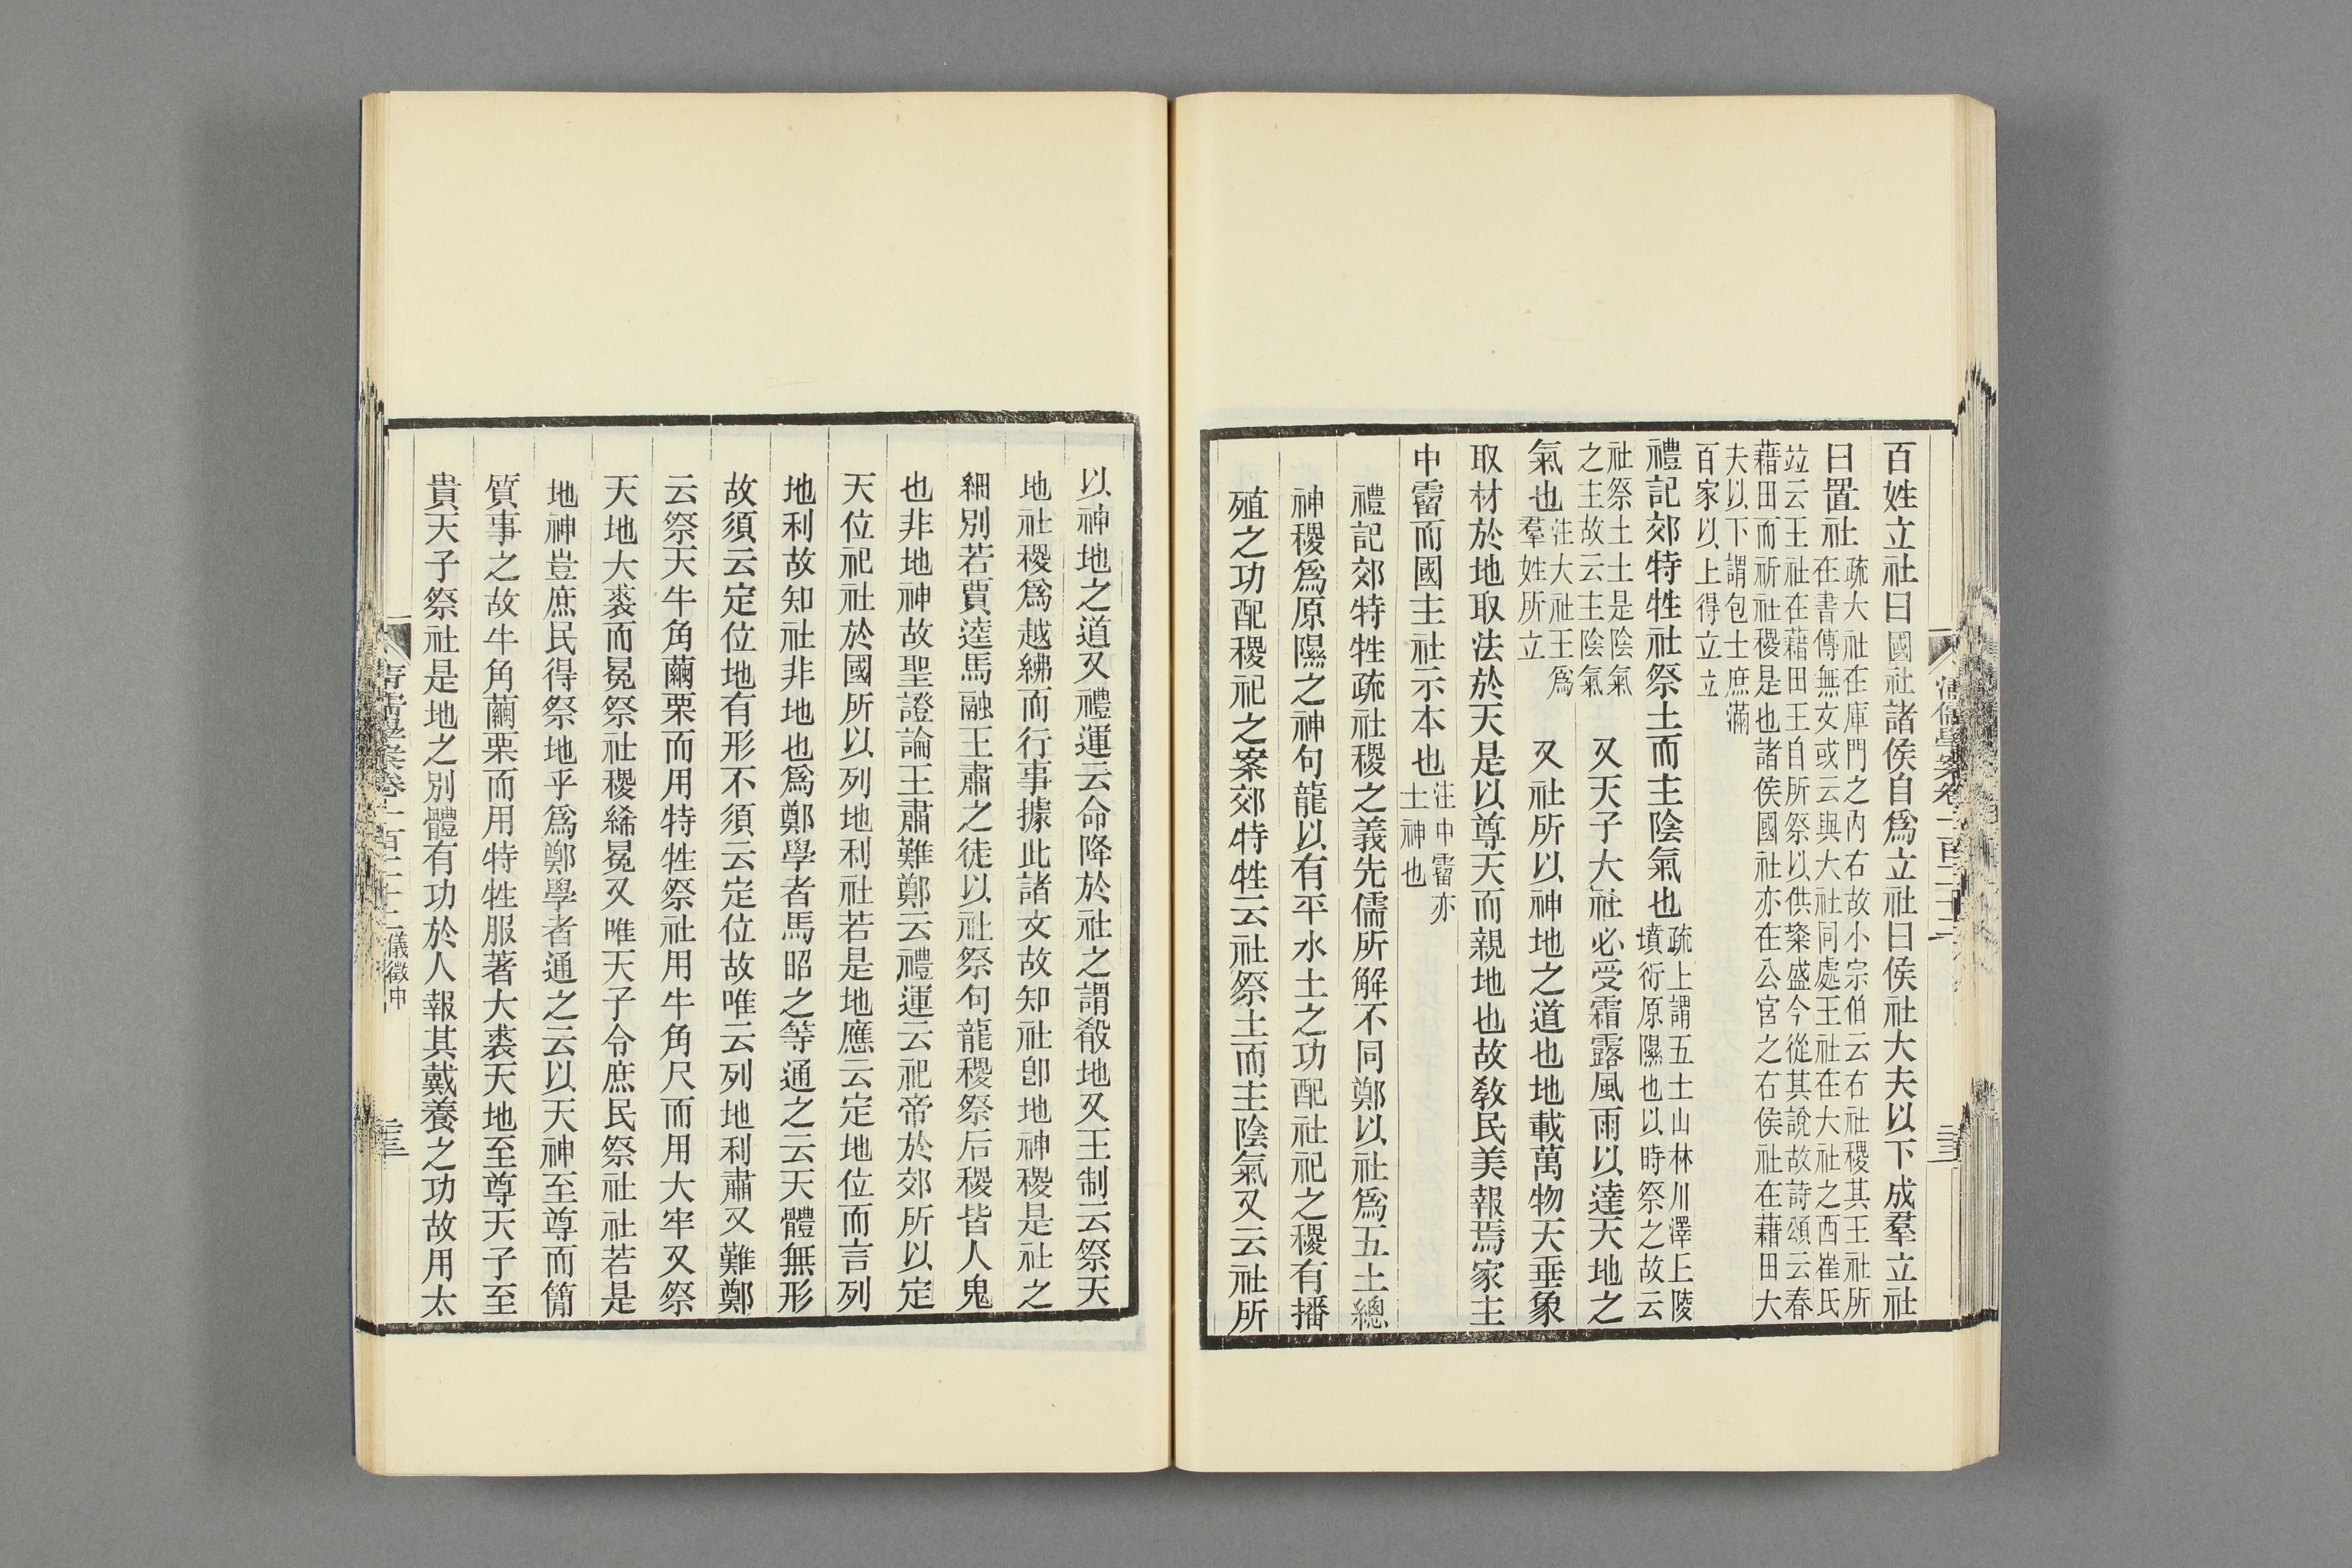 百姓立社曰國社諸侯自爲立社曰侯社大夫以下成羣立社
曰置社
疏大社在庫門之內右故小宗伯云右社稷其王社所
在書傳無文或云與大社同處王社在大社之西崔氏
竝云王社在藉田王自所祭以供粢盛今從其說故詩頌云春
藉田而祈社稷是也諸侯國社亦在公宮之右侯社在藉田大
夫以下謂包士庶滿
百家以上得立立
禮記郊特牲社祭土而主陰氣也
疏上謂五土山林川澤上陵
墳衍原隰也以時祭之故云
社祭土土是陰氣
之主故云主陰氣
又天子大社必受霜露風雨以達天地之
氣也
注大社王爲
羣姓所立
又社所以神地之道也地載萬物天垂象
取材於地取法於天是以尊天而親地也故敎民美報焉家主
中霤而國主社示本也
注中霤亦
土神也
禮記郊特牲疏社稷之義先儒所解不同鄭以社爲五土總
神稷爲原隰之神句龍以有平水土之功配社祀之稷有播
殖之功配稷祀之案郊特牲云社祭土而主陰氣又云社所
以神地之道又禮運云命降於社之謂殽地又王制云祭天
地社稷爲越紼而行事據此諸文故知社卽地神稷是社之
細別若賈逵馬融王肅之徒以社祭句龍稷祭后稷皆人鬼
也非地神故聖證論王肅難鄭云禮運云祀帝於郊所以定
天位祀社於國所以列地利社若是地應云定地位而言列
地利故知社非地也爲鄭學者馬昭之等通之云天體無形
故須云定位地有形不須云定位故唯云列地利肅又難鄭
云祭天牛角繭栗而用特牲祭社用牛角尺而用大牢又祭
天地大裘而冕祭社稷絺冕又唯天子令庶民祭社社若是
地神豈庶民得祭地乎爲鄭學者通之云以天神至尊而簡
質事之故牛角繭栗而用特牲服著大裘天地至尊天子至
貴天子祭社是地之別體有功於人報其戴養之功故用太
清儒學案卷一百二十二 儀徵中
三三